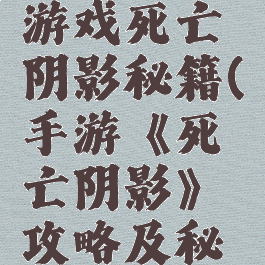 游戏死亡
阴影秘籍(
手游《死
亡阴影》
攻略及秘